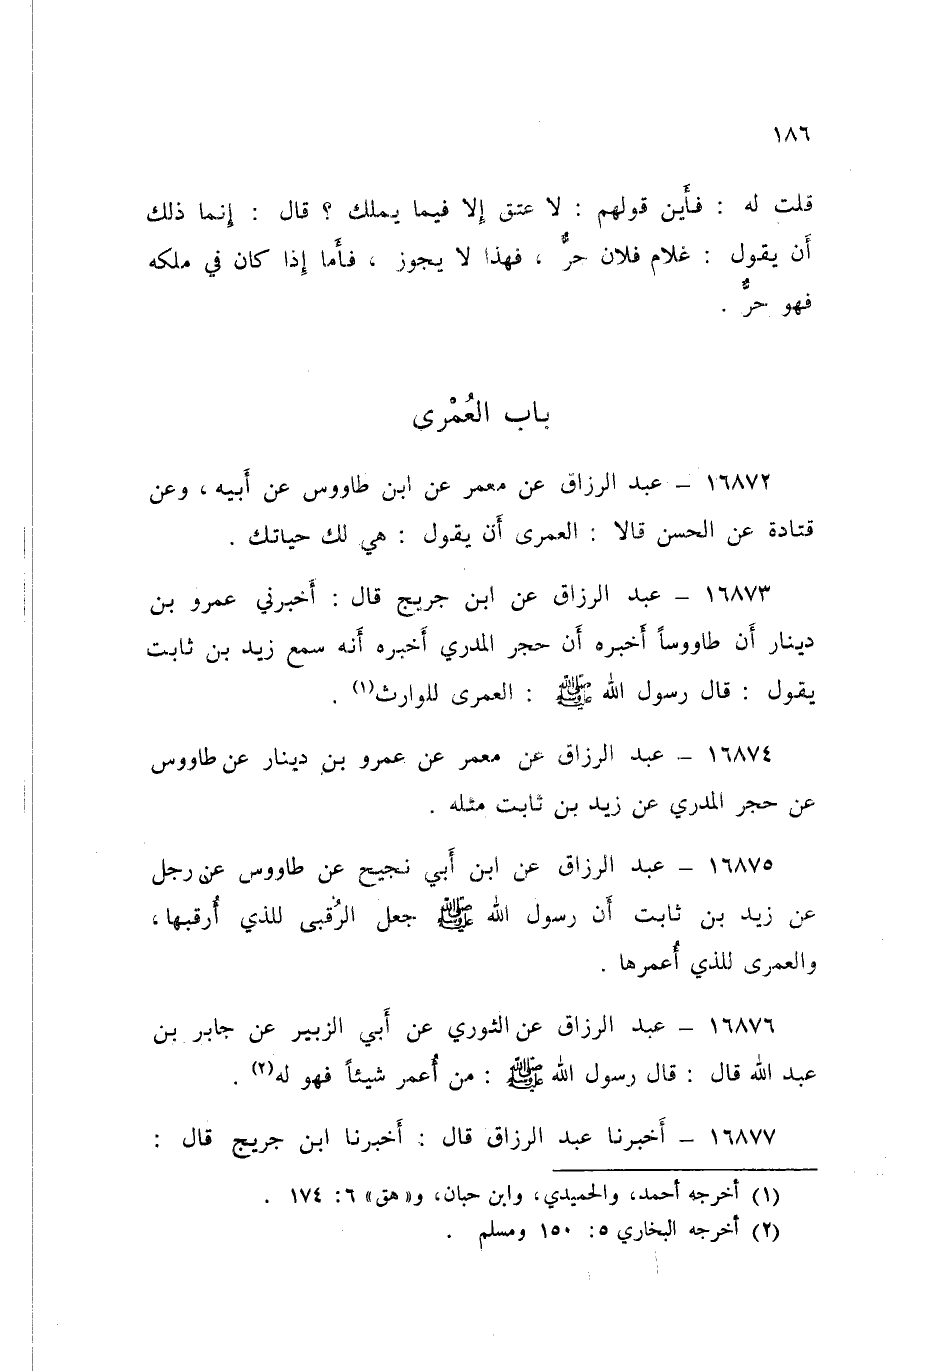 ١٨٦
قلت له : فأَين قولهم : لا عتق إلا فيما يملك ؟ قال : إنما ذلك
أَن يقول : غلام فلان حرٌّ ، فهذا لا يجوز ، فأَما إذا كان في ملكه
فهو حرٌّ .
باب العُمْرى
١٦٨٧٢ – عبد الرزاق عن معمر عن ابن طاووس عن أَبيه ، وعن
قتادة عن الحسن قالا : العمرى أَن يقول : هي لك حياتك .
١٦٨٧٣ – عبد الرزاق عن ابن جريج قال : أَخبرني عمرو بن
دينار أَن طاووساً أَخبره أَن حجر المدري أَخبره أَنه سمع زيد بن ثابت
يقول : قال رسول الله ﷺ : العمرى للوارث(١) .
١٦٨٧٤ – عبد الرزاق عن معمر عن عمرو بن دينار عن طاووس
عن حجر المدري عن زيد بن ثابت مثله .
١٦٨٧٥ – عبد الرزاق عن ابن أَبي نجيح عن طاووس عن رجل
عن زيد بن ثابت أَن رسول الله ﷺ جعل الرُقبى للذي أُرقبها ،
والعمرى للذي أُعمرها .
١٦٨٧٦ – عبد الرزاق عن الثوري عن أَبي الزبير عن جابر بن
عبد الله قال : قال رسول الله ﷺ : من أُعمر شيئاً فهو له(٢) .
١٦٨٧٧ – أَخبرنا عبد الرزاق قال : أَخبرنا ابن جريج قال :
(١) أخرجه أحمد، والحميدي، وابن حبان، و«هق» ٦: ١٧٤ .
(٢) أخرجه البخاري ٥: ١٥٠ ومسلم .